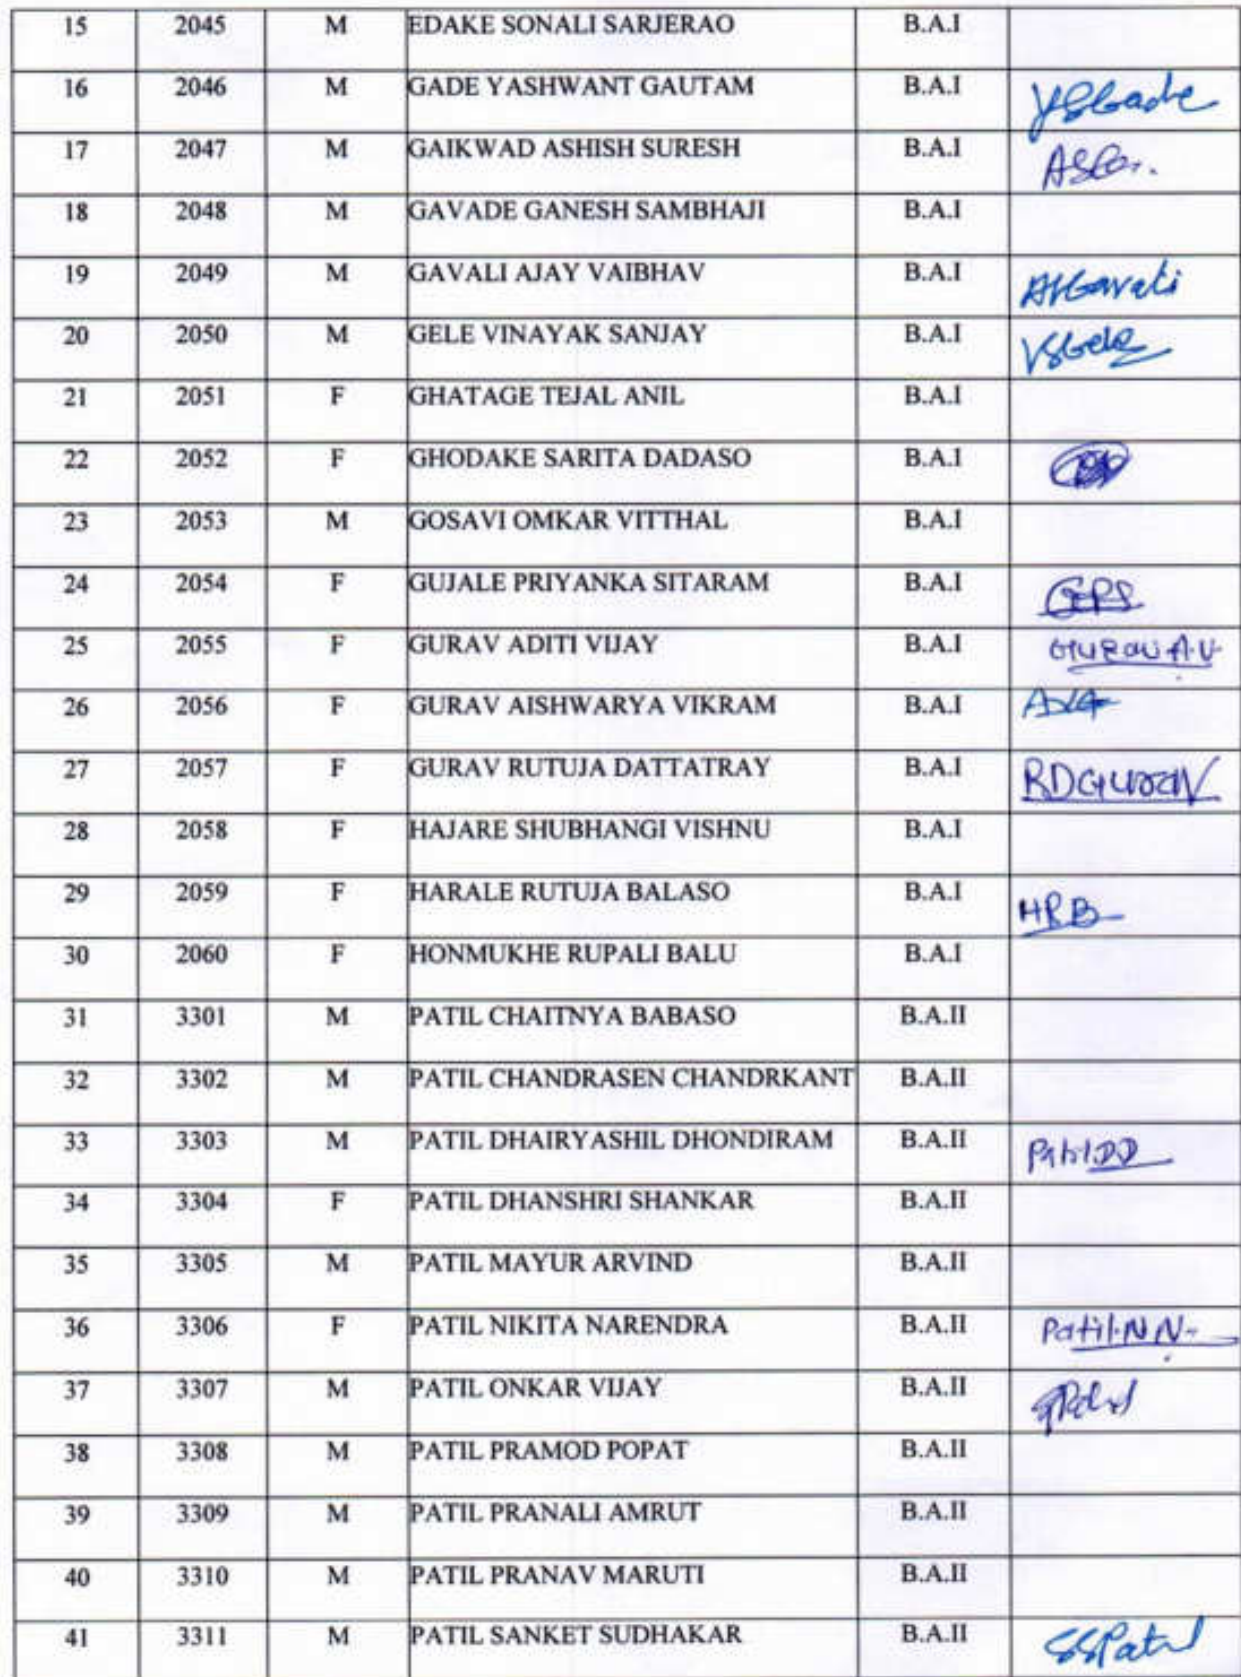 15 2045 M EDAKE SONALI SARJERAO B.A.I
16 2046 M GADE YASHWANT GAUTAM B.A.I YSGade
17 2047 M GAIKWAD ASHISH SURESH B.A.I
18 2048 M GAVADE GANESH SAMBHAJI B.A.I
19 2049 M GAVALI AJAY VAIBHAV B.A.I AVGavali
20 2050 M GELE VINAYAK SANJAY B.A.I VSGele
21 2051 F GHATAGE TEJAL ANIL B.A.I
22 2052 F GHODAKE SARITA DADASO B.A.I
23 2053 M GOSAVI OMKAR VITTHAL B.A.I
24 2054 F GUJALE PRIYANKA SITARAM B.A.I GPS
25 2055 F GURAV ADITI VIJAY B.A.I Gurav A.V.
26 2056 F GURAV AISHWARYA VIKRAM B.A.I AVG
27 2057 F GURAV RUTUJA DATTATRAY B.A.I RDGurav
28 2058 F HAJARE SHUBHANGI VISHNU B.A.I
29 2059 F HARALE RUTUJA BALASO B.A.I HRB
30 2060 F HONMUKHE RUPALI BALU B.A.I
31 3301 M PATIL CHAITNYA BABASO B.A.II
32 3302 M PATIL CHANDRASEN CHANDRKANT B.A.II
33 3303 M PATIL DHAIRYASHIL DHONDIRAM B.A.II Patil.DD
34 3304 F PATIL DHANSHRI SHANKAR B.A.II
35 3305 M PATIL MAYUR ARVIND B.A.II
36 3306 F PATIL NIKITA NARENDRA B.A.II Patil.N.N.
37 3307 M PATIL ONKAR VIJAY B.A.II
38 3308 M PATIL PRAMOD POPAT B.A.II
39 3309 M PATIL PRANALI AMRUT B.A.II
40 3310 M PATIL PRANAV MARUTI B.A.II
41 3311 M PATIL SANKET SUDHAKAR B.A.II SSPatil